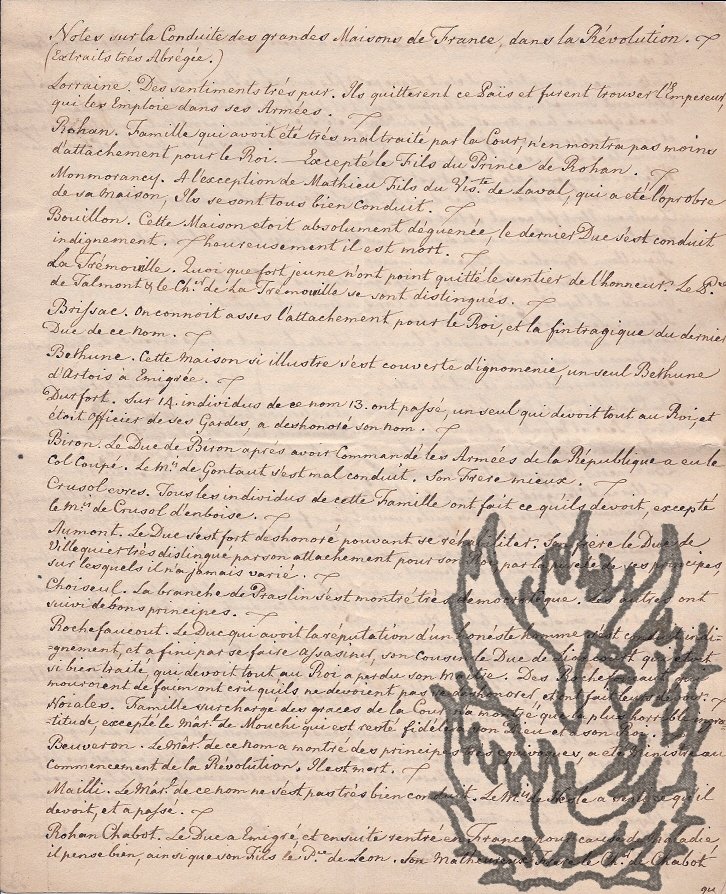 Notes sur la Conduite des grandes Maisons de France, dans la Révolution.
(Extraits très Abrégée.)
Lorraine. Des sentiments très pur. Ils quitterent ce Païs et furent trouver l'Empereur,
qui les Emploie dans ses Armées.
Rohan. Famille qui avoit été très maltraité par la Cour, n'en montra pas moins
d'attachement pour le Roi. — Excepté le Fils du Prince de Rohan.
Monmorancy. A l'exception de Mathieu Fils du Vis.te de Laval, qui a eté l'oprobre
de sa Maison, Ils se sont tous bien Conduit.
Bouillon. Cette Maison etoit absolument déguenée, le dernier Duc s'est conduit
indignement. heureusement il est mort.
La Trémoville. Quoi que fort jeune n'ont point quitté le sentier de l'honneur. Le P.ce
de Talmont & le Ch.er de La Tremoville se sont distingués.
Brissac. On connoit asses l'attachement pour le Roi, et la fin tragique du dernier
Duc de ce nom.
Bethune. Cette Maison si illustre s'est couverte d'ignomenie, un seul Bethune
d'Artois à Emigrée.
Durfort. Sur 14. individus de ce nom 13. ont passé, un seul qui devoit tout au Roi, et
étoit Officier de ses Gardes, a deshonoré son nom.
Biron. Le Duc de Biron après avoir Commandé les Armées de la République a eu le
Col Coupé. Le M.is de Gontaut s'est mal conduit. Son Frere mieux.
Crusol evres. Tous les individus de cette Famille ont fait ce qu'ils devoit, excepté
le M.is de Crusol d'enboise.
Aumont. Le Duc s'est fort deshonoré pouvant se réhabiliter. Son frère le Duc de
Villequier très distingué par son attachement pour son Roi par la pureté de ses principes,
sur lesquels il n'a jamais varié.
Choiseul. La branche de Praslin s'est montré très democratique. Les autres ont
suivi de bons principes.
Rochefaucout. Le Duc qui avoit la réputation d'un honéste homme s'est conduit indi-
-gnement, et a fini par se faire assasiner, son cousin le Duc de liancourt qui etoit
si bien traité, qui devoit tout au Roi a perdu son maître. Des Rochefaucaut qui
mouroient de faim ont cru qu'ils ne devoient pas se deshonorer et ont fait leurs devoir.
Noiales. Famille surchargé des graces de la Cour, n'a montré que la plus horrible ingra-
-titude, excepté le Mar.l de Mouchi qui est resté fidéle à son Dieu et à son Roi.
Beuveron. Le Mar.l de ce nom a montré des principes très equivoques, a eté Ministre au
commencement de la Révolution. Il est mort.
Mailli. Le Mar.l de ce nom ne s'est pas très bien conduit. Le M.is de Nesle a senti ce qu'il
devoit, et a passé.
Rohan Chabot. Le Duc a Emigré et ensuite rentré en France pour cause de maladie,
il pense bien, ainsi que son Fils le P.ce de Leon. Son Malheureux frere le Ch.er de Chabot